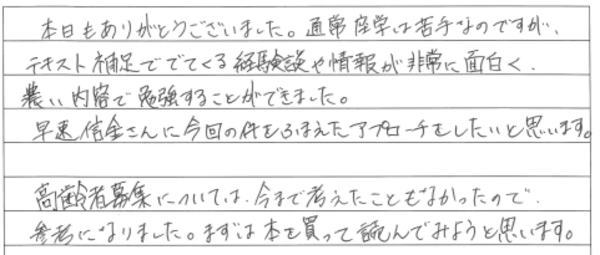 本日もありがとうございました。通常座学は苦手なのですが、
テキスト補足ででてくる経験談や情報が非常に面白く、
濃い内容で勉強することができました。
早速信金さんに今回の件をふまえたアプローチをしたいと思います。
高齢者募集については、今まで考えたこともなかったので、
参考になりました。まずは本を買って読んでみようと思います。